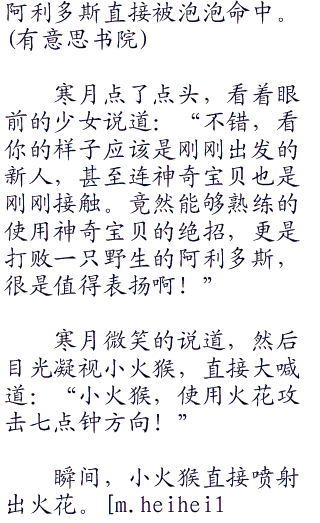 阿利多斯直接被泡泡命中。
(有意思书院)
寒月点了点头，看着眼
前的少女说道：“不错，看
你的样子应该是刚刚出发的
新人，甚至连神奇宝贝也是
刚刚接触。竟然能够熟练的
使用神奇宝贝的绝招，更是
打败一只野生的阿利多斯，
很是值得表扬啊！”
寒月微笑的说道，然后
目光凝视小火猴，直接大喊
道：“小火猴，使用火花攻
击七点钟方向！”
瞬间，小火猴直接喷射
出火花。[m.heihei1